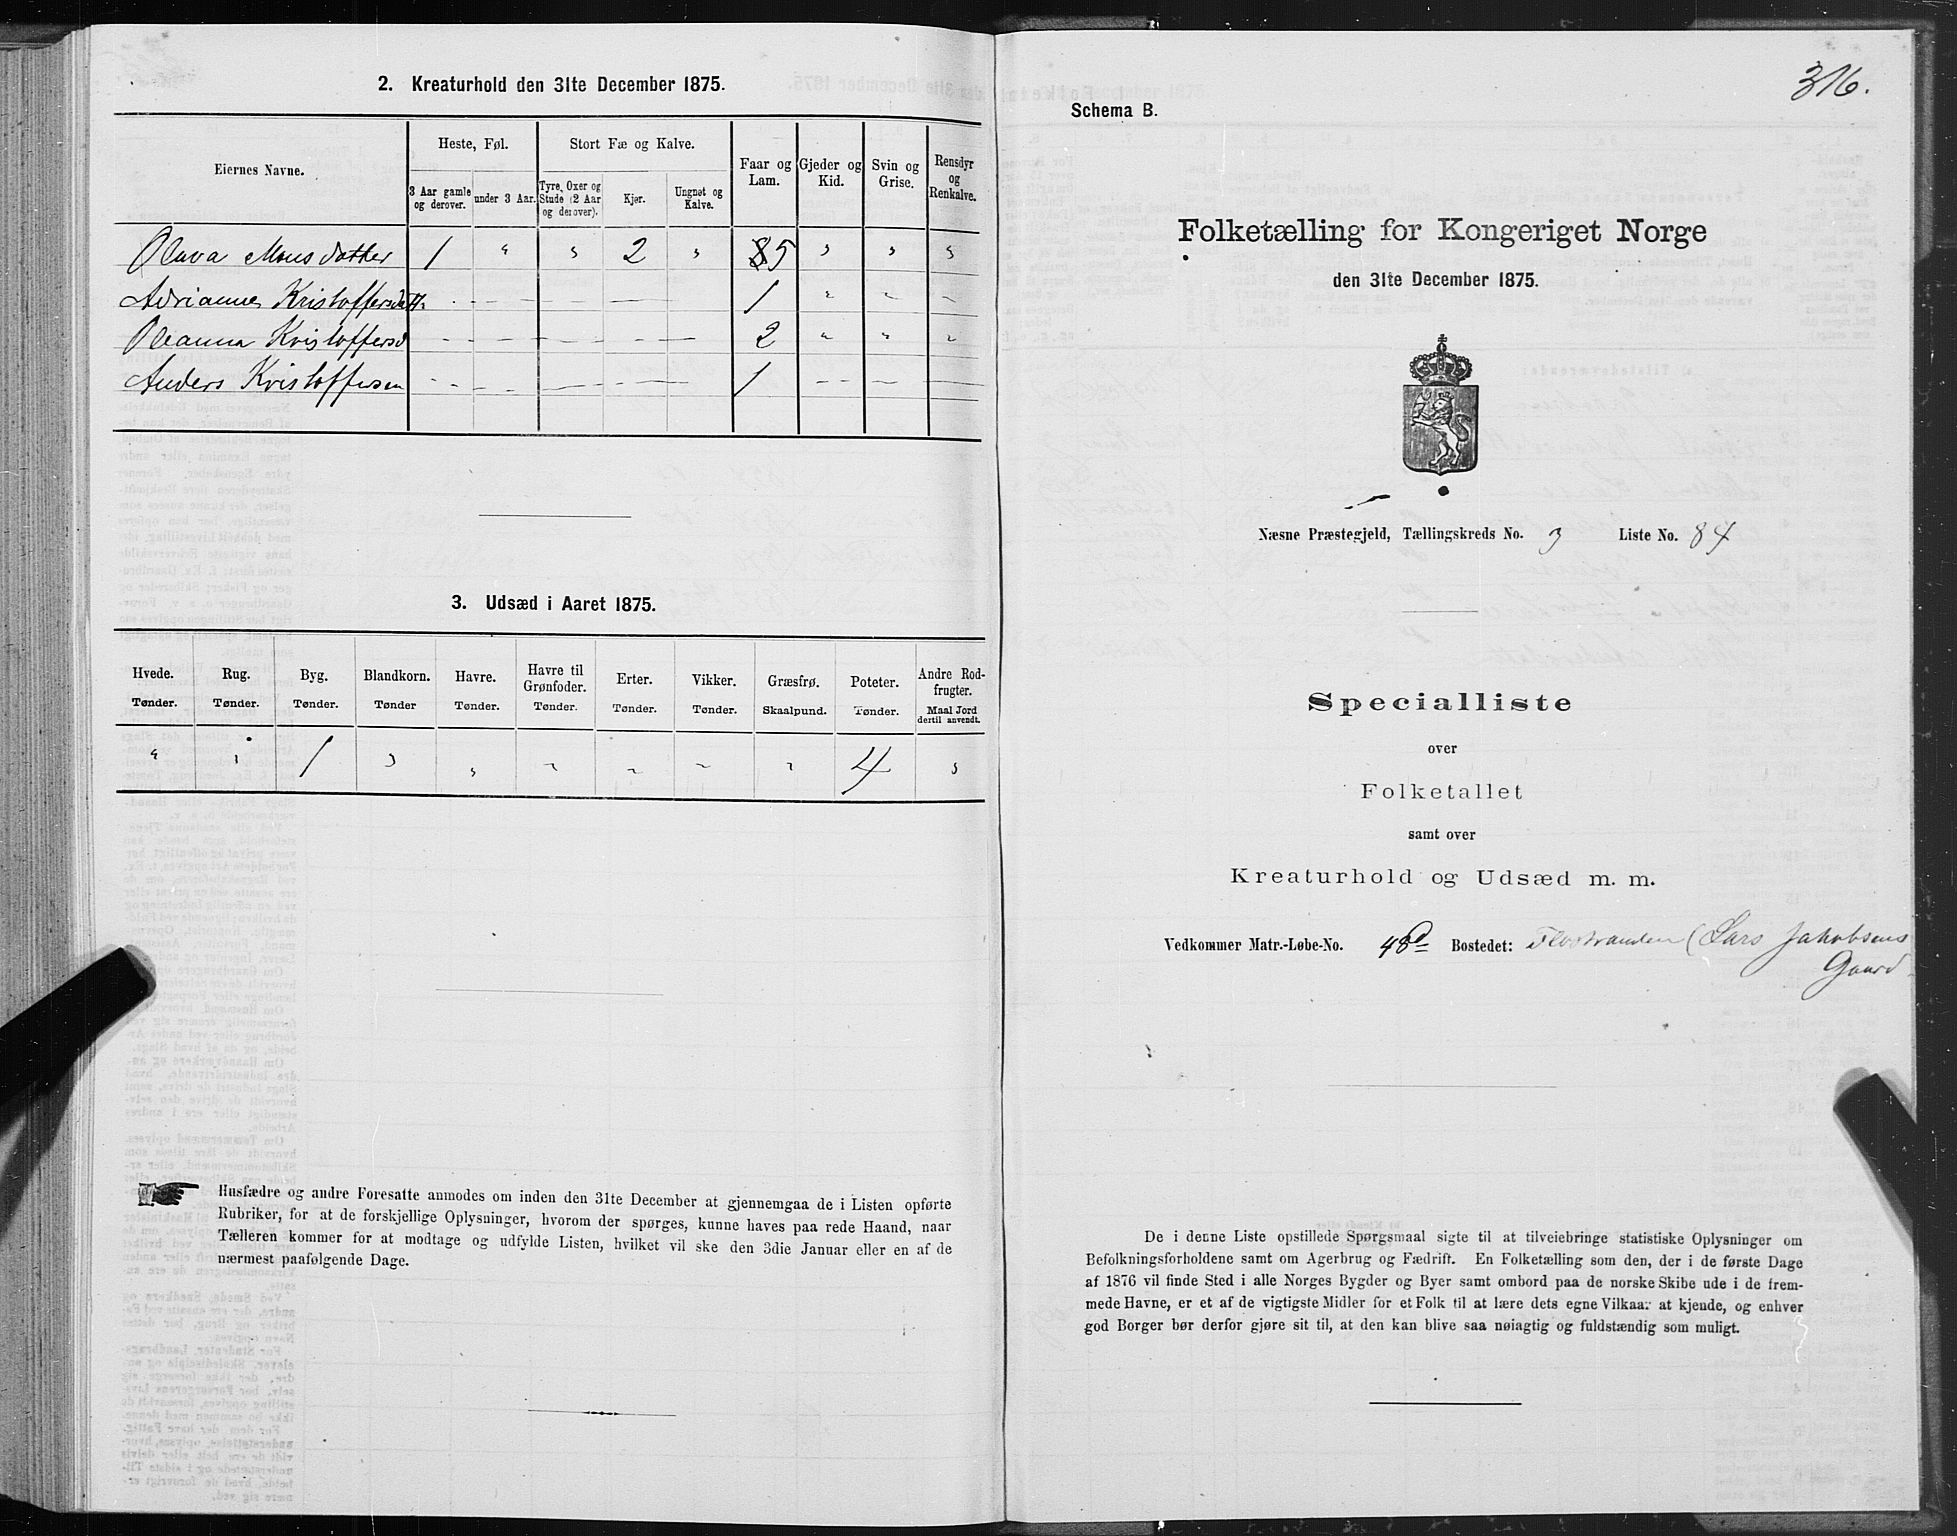 2. Kreaturhold den 31te December 1875.
Eiernes Navne.
Heste, Føl.
Stort Fæ og Kalve.
Faar og Lam.
Gjeder og Kid.
Svin og Grise.
Rensdyr og Renkalve.
3 Aar gamle og derover.
under 3 Aar.
Tyre, Oxer og Stude (2 Aar og derover).
Kjør.
Ungnøt og Kalve.
Olava Monsdatter 1 " " 2 " 5 " " "
Adrianna Kristoffersdatt. - - - - - 1 " " "
Oleanna Kristoffersd - - - - - 2 " " "
Anders Kristoffersen - - - - - 1 - - -
3. Udsæd i Aaret 1875.
Hvede. Rug. Byg. Blandkorn. Havre. Havre til Grønfoder. Erter. Vikker. Græsfrø. Poteter. Andre Rodfrugter.
Tønder. Tønder. Tønder. Tønder Tønder. Tønder. Tønder. Tønder. Skaalpund. Tønder. Maal Jord dertil anvendt.
" " 1 " " " " " " 4 "
Husfædre og andre Foresatte anmodes om inden den 31te December at gjennemgaa de i Listen opførte
Rubriker, for at de forskjellige Oplysninger, hvorom der spørges, kunne haves paa rede Haand, naar
Tælleren kommer for at modtage og udfylde Listen, hvilket vil ske den 3die Januar eller en af de
nærmest paafølgende Dage.
316.
Schema B.
Folketælling for Kongeriget Norge
den 31te December 1875.
Næsne Præstegjeld, Tællingskreds No. 3 Liste No. 84
Specialliste
over
Folketallet
samt over
Kreaturhold og Udsæd m. m.
Vedkommer Matr.-Løbe-No. 48d Bostedet: Flostranden (Lars Jakobsens
Gaard
De i denne Liste opstillede Spørgsmaal sigte til at tilveiebringe statistiske Oplysninger om
Befolkningsforholdene samt om Agerbrug og Fædrift. En Folketælling som den, der i de første Dage
af 1876 vil finde Sted i alle Norges Bygder og Byer samt ombord paa de norske Skibe ude i de frem-
mede Havne, er et af de vigtigste Midler for et Folk til at lære dets egne Vilkaar at kjende, og enhver
god Borger bør derfor gjøre sit til, at den kan blive saa nøiagtig og fuldstændig som muligt.